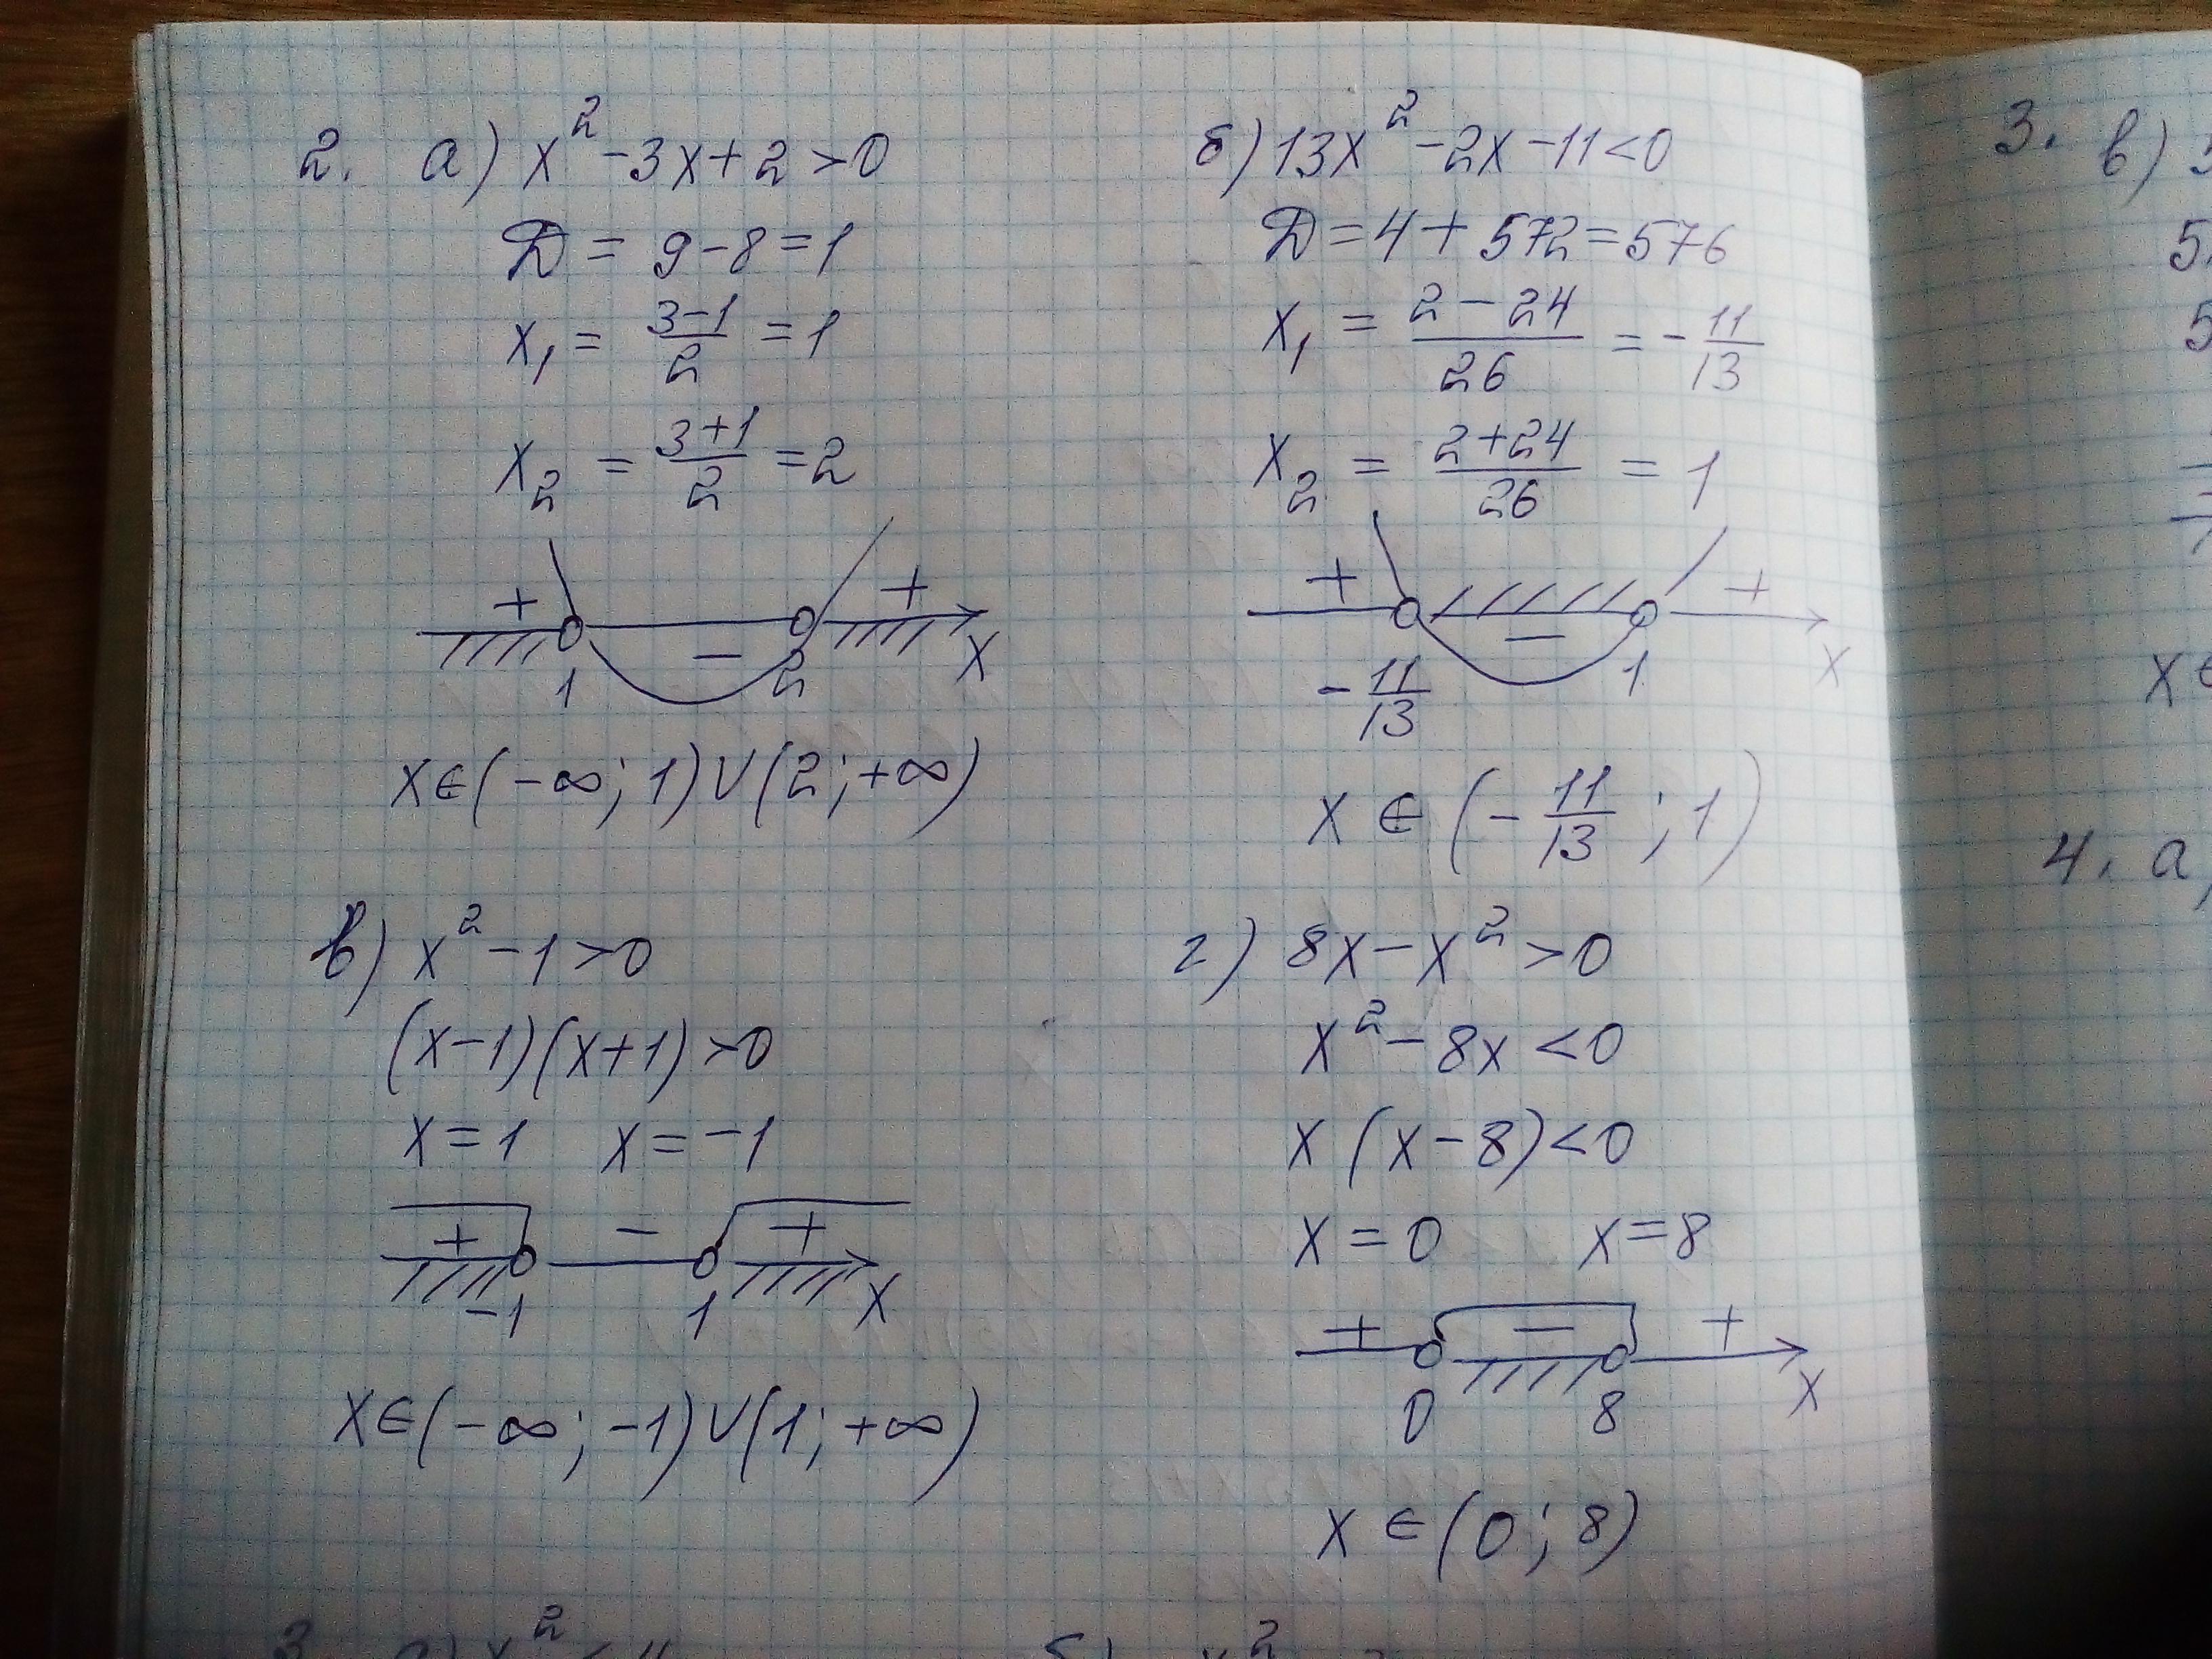 2. а) x² - 3x + 2 > 0
D = 9 - 8 = 1
x₁ = (3-1)/2 = 1
x₂ = (3+1)/2 = 2
+ - +
1 2 x
x ∈ (-∞; 1) ∪ (2; +∞)
б) 13x² - 2x - 11 < 0
D = 4 + 572 = 576
x₁ = (2 - 24)/26 = -11/13
x₂ = (2+24)/26 = 1
+ - +
-11/13 1 x
x ∈ (-11/13; 1)
в) x² - 1 > 0
(x-1)(x+1) > 0
x = 1 x = -1
+ - +
-1 1 x
x ∈ (-∞; -1) ∪ (1; +∞)
г) 8x - x² > 0
x² - 8x < 0
x (x-8) < 0
x = 0 x = 8
+ - +
0 8 x
x ∈ (0; 8)
3. в)
5
x ∈
4. а